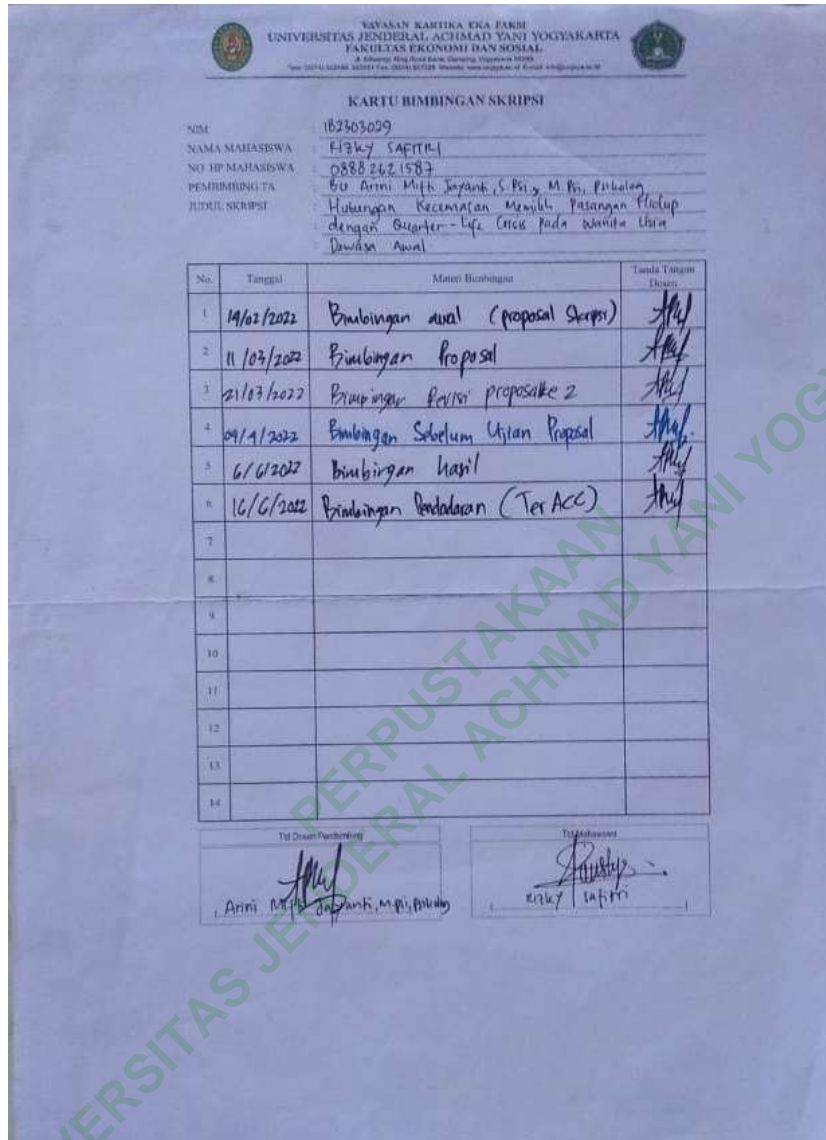 YAYASAN KARTIKA EKA PAKSI
UNIVERSITAS JENDERAL ACHMAD YANI YOGYAKARTA
FAKULTAS EKONOMI DAN SOSIAL
KARTU BIMBINGAN SKRIPSI
NIM : 182303029
NAMA MAHASISWA : RIZKY SAFITRI
NO HP MAHASISWA : 08882621587
PEMBIMBING TA : Bu Arini Mifti Jayanti, S.Psi., M.Psi, Psikolog
JUDUL SKRIPSI : Hubungan Kecemasan Memilih Pasangan Hidup
dengan Quarter-Life Crisis pada Wanita Usia
Dewasa Awal
No. Tanggal Materi Bimbingan Tanda Tangan Dosen
1 14/02/2022 Bimbingan awal (proposal Skripsi)
2 11/03/2022 Bimbingan Proposal
3 21/03/2022 Bimbingan Revisi proposal ke 2
4 04/4/2022 Bimbingan Sebelum Ujian Proposal
5 6/6/2022 Bimbingan hasil
6 16/6/2022 Bimbingan Pendadaran (Ter ACC)
7
8
9
10
11
12
13
14
Ttd Dosen Pembimbing Ttd Mahasiswa
Arini Mifti Jayanti, M.Psi, Psikolog Rizky Safitri
PERPUSTAKAAN
UNIVERSITAS JENDERAL ACHMAD YANI YOGY